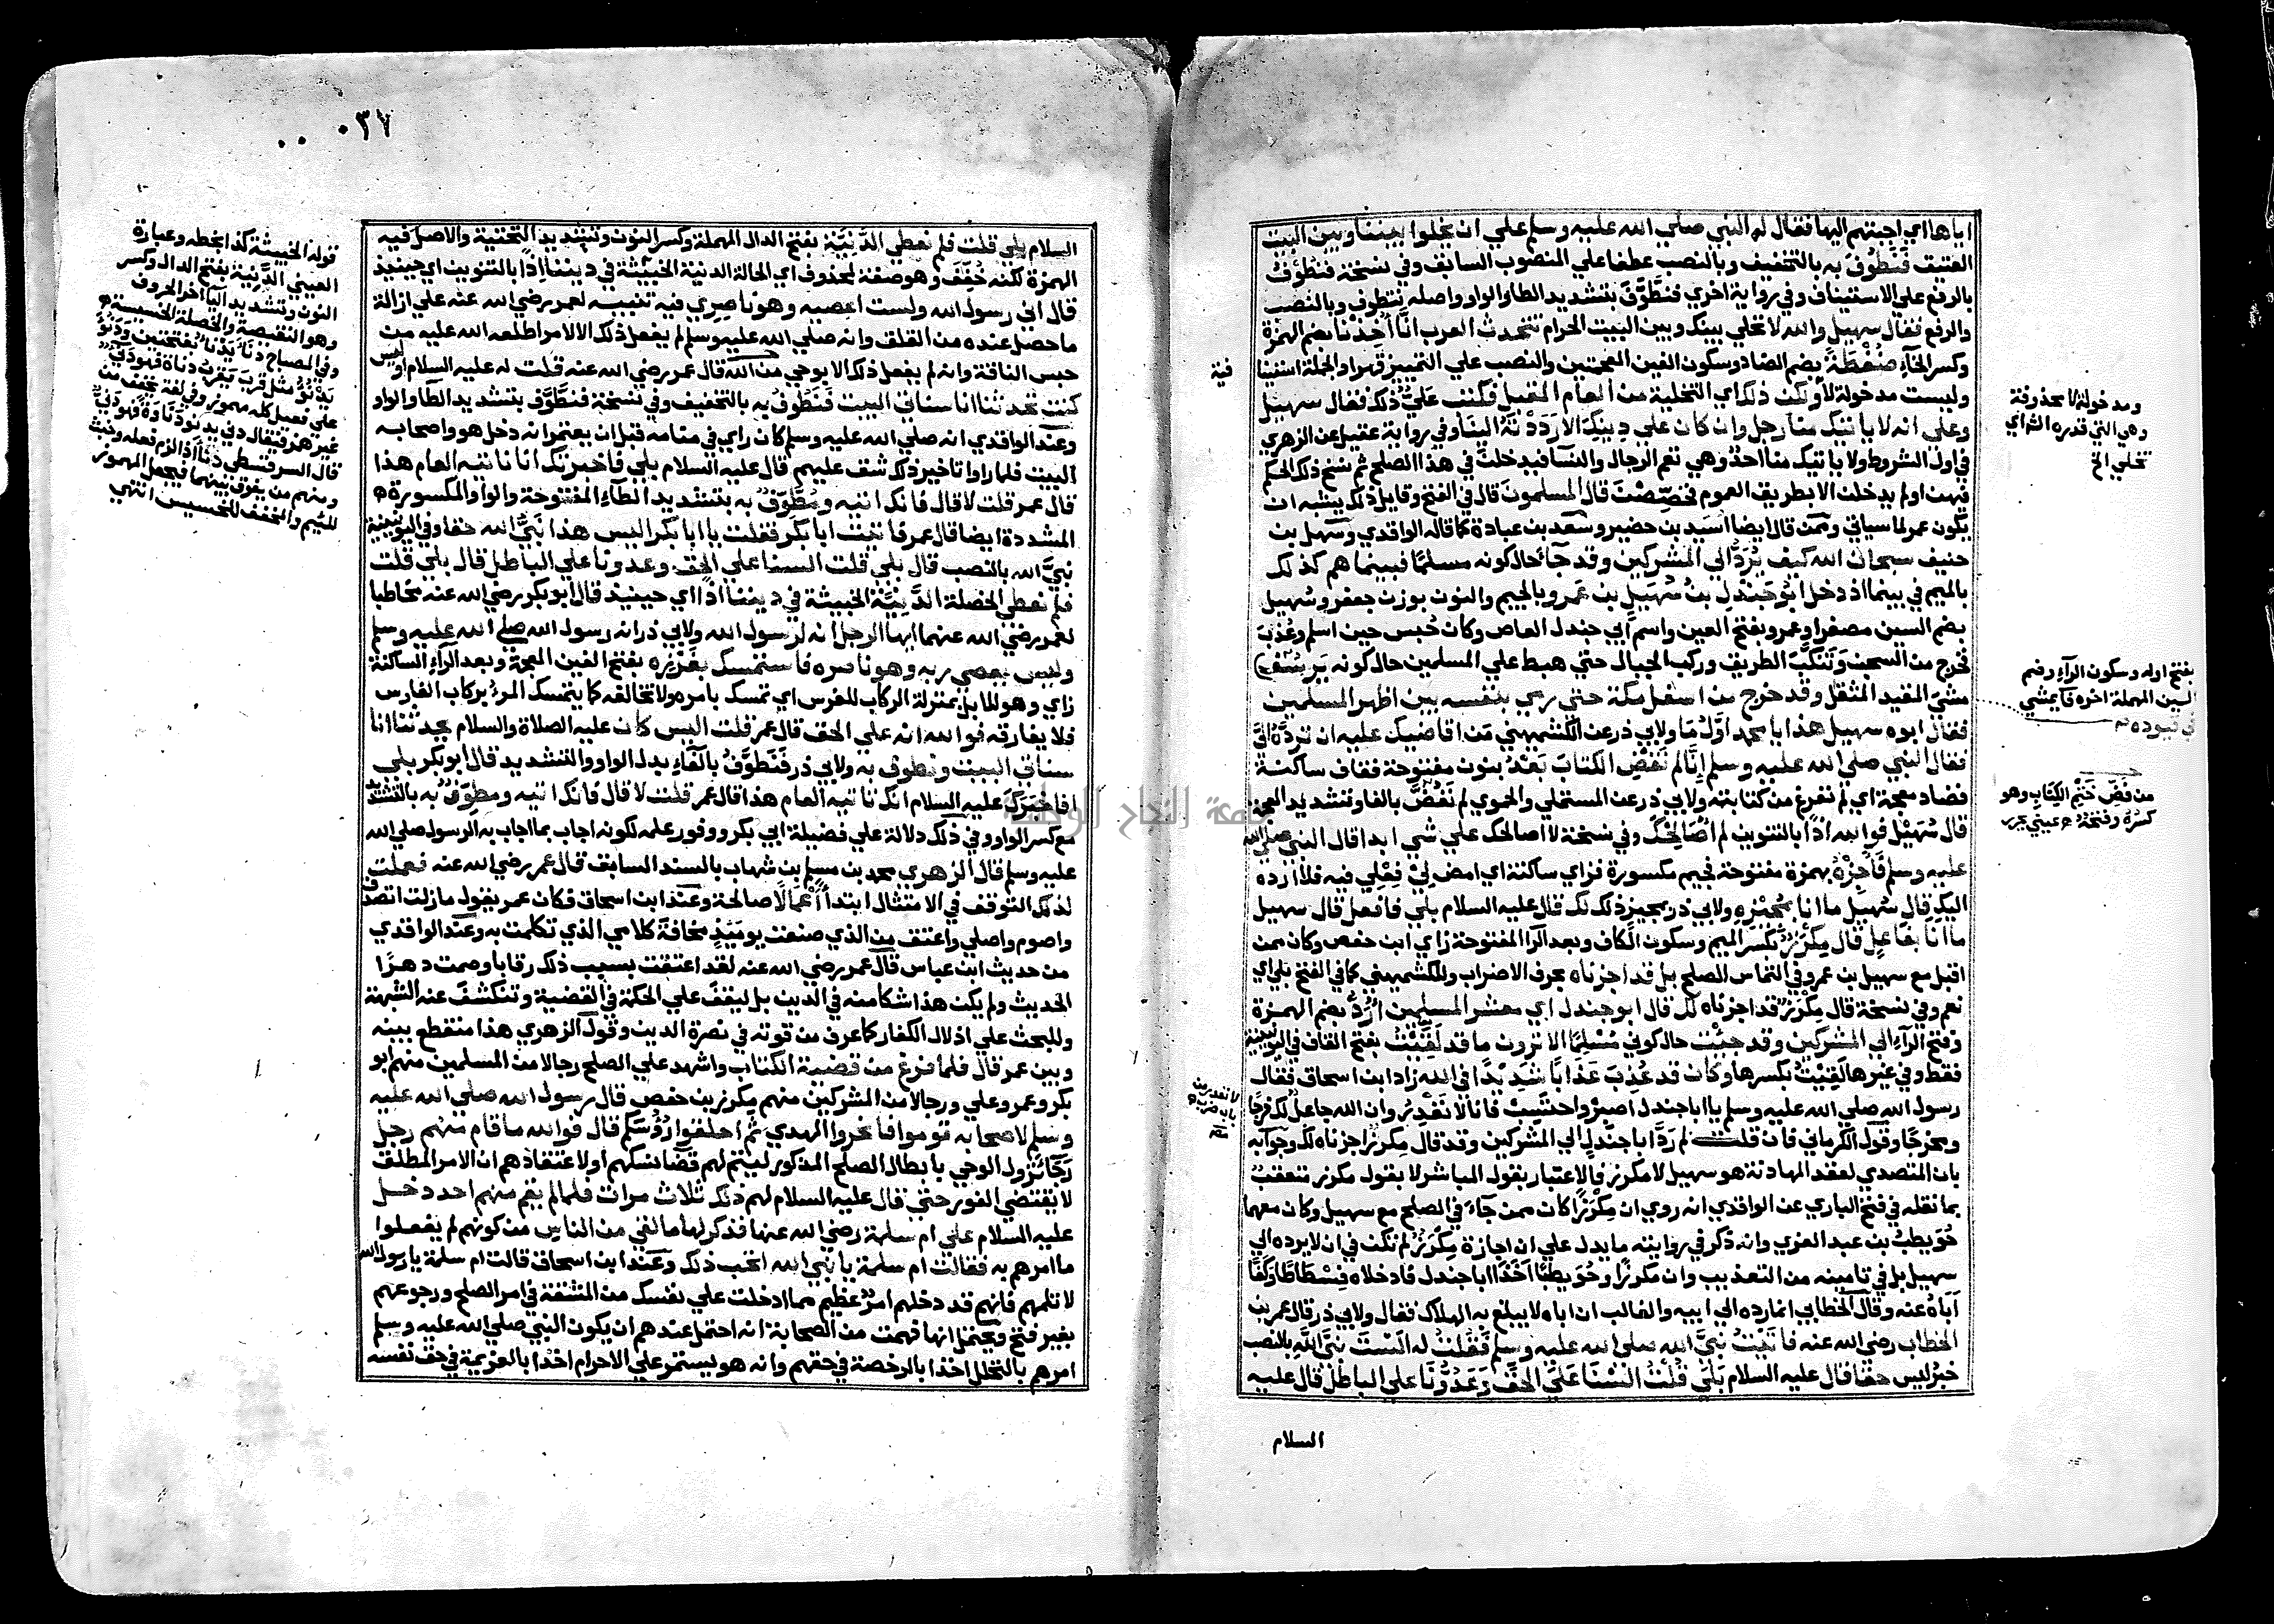 اياها اي اجبتهم اليها فقال له النبي صلي الله عليه وسلم علي ان تخلوا بيننا وبين البيت
العتيق فَنَطُوفَ به بالتخفيف وبالنصب عطفا علي المنصوب السابق وفي نسخة فنطوفُ
بالرفع علي الاستيناف وفي رواية اخري فنطَّوَّفَ بتشديد الطا والواو واصله نتطوف وبالنصب
والرفع فقال سهيل والله لا نخلي بينك وبين البيت الحرام تتحدث العرب انَّا اُخِذْنا بضم الهمزة
وكسر الخآء ضُغْطَةً بضم الضاد وسكون الغين المعجمتين والنصب علي التمييز قهرا والجملة استينا
فية
وليست مدخولة لا ولكن ذلك اي التخلية من العام المقبل فكتب عليُّ ذلك فقال سهيل
وعلي انه لا ياتيك منا رجل وان كان علي دينك الا رَدَدْتَهُ الينا وفي رواية عقيل عن الزهري
في اول الشروط ولا ياتيك منا احدٌ وهي تعم الرجال والنسآ فيدخلن في هذا الصلح ثم نسخ ذلك الحكم
فيهن او لم يدخلن الا بطريق العموم فخُصِّصْنَ قال المسلمون قال في الفتح وقايل ذلك يشبه ان
يكون عمر لما سياتي وممن قال ايضا اسيد بن حضير وسعد بن عبادة كما قاله الواقدي وسهل بن
حنيف سبحان الله كيف يُرَدُّ الي المشركين وقد جآء حال كونه مسلمًا فبينما هم كذلك
بالميم في بينما اذ دخل ابُو جَنْدَلِ بنُ سُهَيْلِ بن عَمرو بالجيم والنون بوزن جعفر وسُهيل
بضم السين مصغرا وعمرو بفتح العين واسم ابي جندل العاص وكان حُبس حين اسلم وعُذِّبَ
فخرج من السجن وتنكَّبَ الطريق وركب الجبال حتي هبط علي المسلمين حال كونه يَرسُف
مشي المقيد المثقل وقد خرج من اسفل مكة حتي رمي بنفسه بين اظهر المسلمين
فقال ابوه سهيل هذا يا محمد اوَّلُ مَا ولابي ذر عن الكشميهني مَن اقاضيك عليه ان تردَّه اليَّ
فقال النبي صلي الله عليه وسلم اِنَّا لم نَقْضِ الكتابَ بَعْدُ بنون مفتوحة فقاف ساكنة
فضاد معجمة اي لم نفرغ من كتابته ولابي ذر عن المستملي والحموي لم نَفُضَّ بالفا وتشديد المعجمة
قال سُهَيْل فوالله اذًا بالتنوين لم اُصالحكَ وفي نسخة لا اصالحك علي شي ابدا قال النبي صلي الله
عليه وسلم فَاَجِزْهُ بهمزة مفتوحة فجيم مكسورة فزاي ساكنة اي امض لِيْ فِعْلِي فيه فلا ارده
اليك قال سُهَيل ما انا بمُجيْزِهِ ولابي ذر بمجيز ذلك لك قال عليه السلام بلي فافعل قال سهيل
ما انا بفاعل قال مِكْرَزٌ بكسر الميم وسكون الكاف وبعد الرا المفتوحة زاي ابن حفص وكان ممن
اقبل مع سهيل بن عمرو في التماس الصلح بل قد اجزناه بحرف الاضراب وللكشميهني كما في الفتح بلي اي
نعم وفي نسخة قال مِكرَزٌ قد اجزناه لك قال ابو جندل اي معشر المسلمين اُرَدُّ بضم الهمزة
وفتح الرآء الي المشركين وقد جئت حال كوني مُسْلِمًا الا ترون ما قد لَقَيْتُ بفتح القاف في اليونينية
فقط وفي غيرها لَقِيْتُ بكسرها وكان قد عُذِّبَ عَذابًا شَدِيْدًا في الله زاد ابن اسحاق فقال
رسول الله صلي الله عليه وسلم يا ابا جندل اصبرْ واحتسِبْ فانا لا نَغْدِرُ وان الله جاعلٌ لك فرجًا
ومخرجًا وقول الكرماني فان قلت لم رَدَّ ابا جندلٍ الي المشركين وقد قال مكرز اجزناه لك وجوابه
بان المتصدي لعقد المهادنة هو سهيل لا مكرز فالاعتبار بقول المباشر لا بقول مكرز متعقبٌ
بما نقله في فتح الباري عن الواقدي انه روي ان مِكرَزًا كان ممن جآء في الصلح مع سهيل وكان معهما
حُوَيطبُ بن عبد العزي وانه ذكر في روايته ما يدل علي ان اجازة مِكرَزٍ لم تكن في ان لا يرده الي
سهيل بل في تامينه من التعذيب وان مكرزًا وحُوَيطبًا اَخَذَا ابا جندل فادخلاه فِسْطَاطًا وكَفَّا
اَبَاهُ عنه وقال الخطابي انما رده الي ابيه والغالب ان اباه لا يبلغ به الهلاك فقال ولابي ذر قال عمر بن
الخطاب رضي الله عنه فاتَيْتُ نَبِيَّ الله صلي الله عليه وسلم فَقُلتُ له اَلَسْتَ نَبِيَّ اللهِ بالنصب
خبرُ ليس حقًا قال عليه السلام بَلَي قُلْتُ السْنَا عَلَي الحَقِّ وَعَدُوُّنَا علي الباطل قال عليه
السلام
ومدخولة لا محذوفة
وهي التي قدره الشراي
نخلي الخ
بفتح اوله وسكون الرآء وضم
السين المهملة اخره فا يمشي
في قيوده
من فَضّ ختْم الكِتَاب وهو
كسرُه وفتحُه عيني
٠٣٧
السلام بلي قلت فلم نعطي الدَّنِيَّة بفتح الدال المهملة وكسر النون وتشديد التحتية والاصل فيه
الهمزة لكنه خُفِّفَ وهو صفة لمحذوف اي الحالة الدنية الخبيثة في ديننا اِذًا بالتنوين اي حينيذ
قال اني رسول الله ولست اعصيه وهو ناصِرِي فيه تنبيه لعمر رضي الله عنه علي ازالة
ما حصل عنده من القلق وانه صلي الله عليه وسلم لم يفعل ذلك الا لامر اطلعه الله عليه من
حبس الناقة وانه لم يفعل ذلك الا بوحي من الله قال عمر رضي الله عنه قلت له عليه السلام اوليس
كنت تحدثنا انا سناتي البيت فَنَطُوفُ به بالتخفيف وفي نسخة فنطَّوَّف بتشديد الطآء والواو
وعند الواقدي انه صلي الله عليه وسلم كان راي في منامه قبل ان يعتمر انه دخل هو واصحابه
البيت فلما راوا تاخير ذلك شق عليهم قال عليه السلام بلي فاخبرتك انا ناتيه العام هذا
قال عمر قلت لا قال فانك اتيه ومُطَّوِّفٌ به بتشديد الطآء المفتوحة والواو المكسورة
المشددة ايضا قال عمر فاتيت ابا بكر فقلت يا ابا بكر اليس هذا نَبِيُّ الله حقا وفي اليونينية
نبيَّ الله بالنصب قال بلي قلت السنا علي الحق وعدونا علي الباطل قال بلي قلت
فلم نعطي الخصلة الدَّنِيَّة الخبيثة في ديننا اذًا اي حينيذ قال ابو بكر رضي الله عنه مخاطبا
لعمر رضي الله عنهما ايها الرجل انه لرسول الله ولابي ذر انه رسول الله صلي الله عليه وسلم
وليس يعصي ربه وهو ناصره فاستمسك بغَرْزِه بفتح الغين المعجمة وبعد الرآء الساكنة
زاي وهو للابل بمنزلة الركاب للفرس اي تمسك بامره ولا تخالفه كما يتمسك المرءُ بركاب الفارس
فلا يفارقه فوالله انه علي الحق قال عمر قلت اليس كان عليه الصلاة والسلام يحدثنا انا
سناتي البيت ونطوف به ولابي ذر فَنَطَّوَّفُ بالفآء بدل الواو والتشديد قال ابو بكر بلي
افاخبرَكَ عليه السلام انك تاتيه العام هذا قال عمر قلت لا قال فانك اتيه ومطوِّفٌ به بالتشديد
مع كسر الواو وفي ذلك دلالة علي فضيلة ابي بكر ووفور علمه لكونه اجاب بما اجاب به الرسول صلي الله
عليه وسلم قال الزهري محمد بن مسلم بن شهاب بالسند السابق قال عمر رضي الله عنه فعملت
لذلك التوقف في الامتثال ابتدآءً اَعْمَالًا صالحة وعند ابن اسحاق فكان عمر يقول ما زلت اتصدق
واصوم واصلي واعتق من الذي صنعت يوميَذٍ مخافة كلامي الذي تكلمت به وعند الواقدي
من حديث ابن عباس قال عمر رضي الله عنه لقد اعتقت بسبب ذلك رقابا وصمت دهرًا
الحديث ولم يكن هذا شكا منه في الدين بل ليقف علي الحكمة في القضية وتنكشفَ عنه الشبهة
وللبحث علي اذلال الكفار كما عرف من قوته في نصرة الدين وقول الزهري هذا منقطع بينه
وبين عمر قال فلما فرغ من قضية الكتاب واشهد علي الصلح رجالا من المسلمين منهم ابو
بكر وعمر وعلي ورجالا من المشركين منهم مِكرز بن حفص قال رسول الله صلي الله عليه
وسلم لاصحابه قوموا فانحروا الهدي ثم احلقوا رُؤُسَكم قال فوالله ما قام منهم رجل
رَجَآءَ نزول الوحي بابطال الصلح المذكور ليتم لهم قضآء نسكهم او لاعتقادهم ان الامر المطلق
لا يقتضي الفور حتي قال عليه السلام لهم ذلك ثلاث مرات فلما لم يقم منهم احد دخل
عليه السلام علي ام سلمة رضي الله عنها فذكر لها ما لقي من الناس من كونهم لم يفعلوا
ما امرهم به فقالت ام سلمة يا نبي الله اتحب ذلك وعند ابن اسحاق قالت ام سلمة يا رسول الله
لا تلمهم فانهم قد دخلهم امرٌ عظيم مما ادخلت علي نفسك من المشقة في امر الصلح ورجوعهم
بغير فتح ويحتمل انها فهمت من الصحابة انه احتمل عندهم ان يكون النبي صلي الله عليه وسلم
امرهم بالتحلل اخذا بالرخصة في حقهم وانه هو يستمر علي الاحرام اخذا بالعزيمة في حق نفسه
قوله الخبيثة كذا بخطه وعبارة
العيني الدَّنِية بفتح الدال وكسر
النون وتشديد اليآء اخر الحروف
وهو النقيصة والخصلة الخسيسة
وفي المصباح دنَأ يَدْنَأ بفتحتين ودَنُؤَ
يَدْنُؤُ مثل قرب يقرب دناءة فهو دَنِيءٌ
علي فعيل كله مهموز وفي لغة يخفف من
غير همز فيقال دني يدنو دناوة فهو دَنِيٌّ
قال السرقسطي دنَأ اذا لؤم فعله وخبث
ومنهم من يفرق بينهما فيجعل المهموز
للئيم والمخفف للخسيس انتهي
جامعة النجاح الوطنية